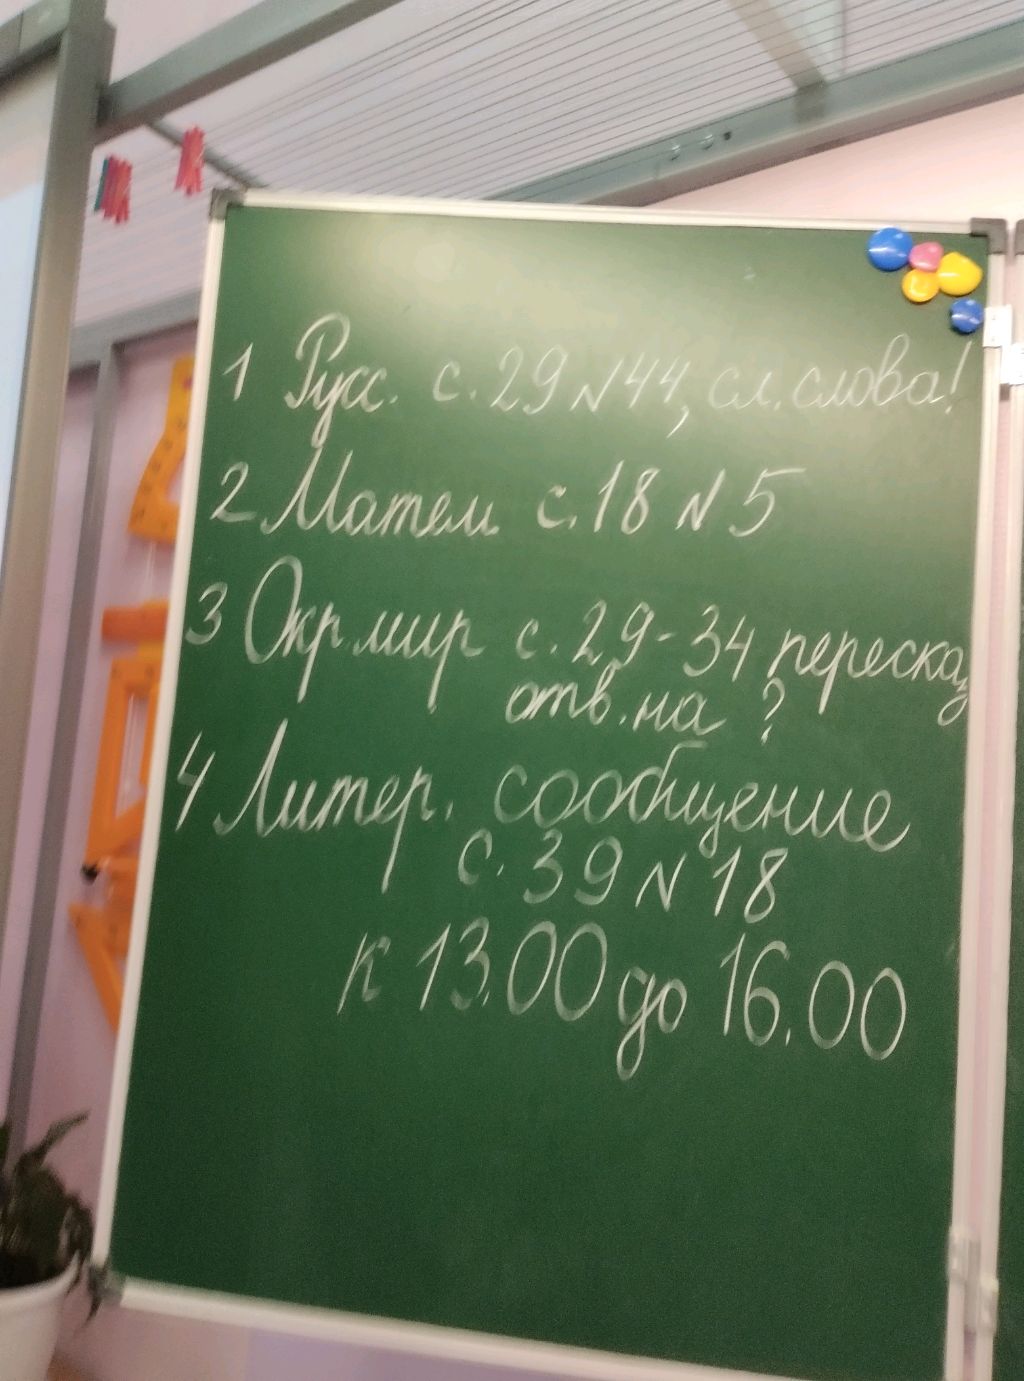 1 Русс. с. 29 N 44, сл. слова!
2 Матем. с. 18 N 5
3 Окр. мир с. 29-34 пересказ,
отв. на ?
4 Литер. сообщение
с. 39 N 18
к 13.00 до 16.00